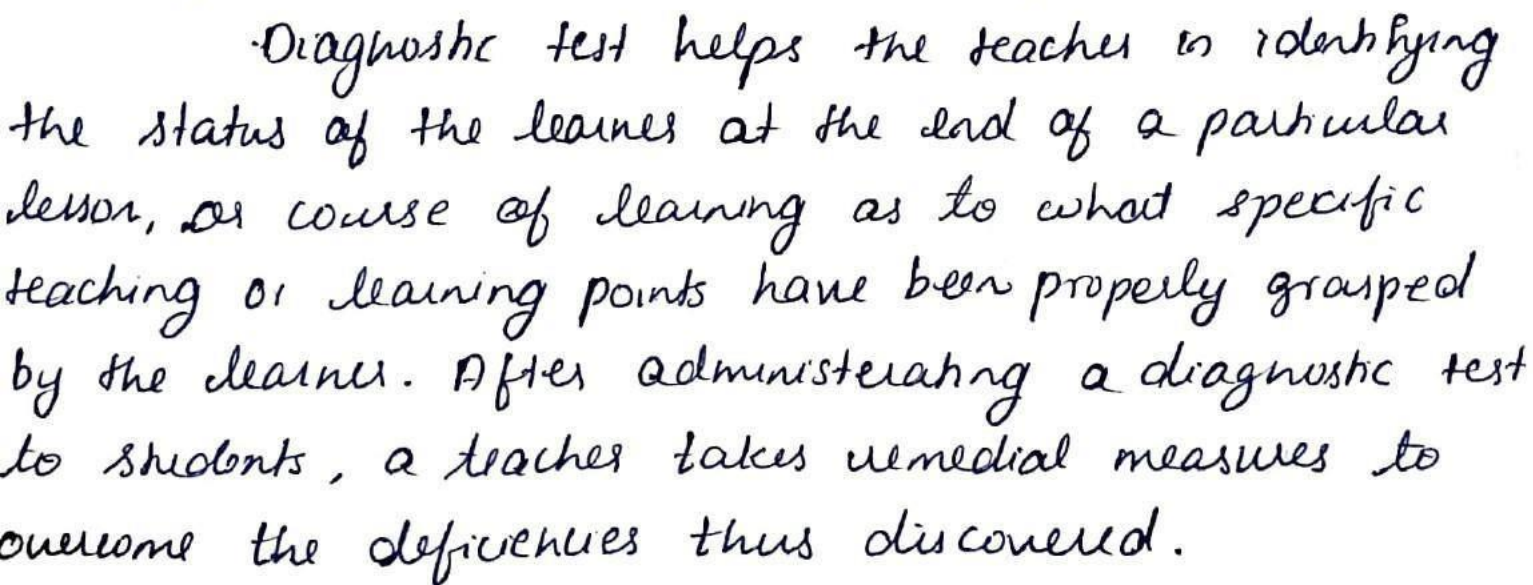 Diagnostic test helps the teacher in identifying
the status of the learner at the end of a particular
lesson, or course of learning as to what specific
teaching or learning points have been properly grasped
by the learner. After administerating a diagnostic test
to students, a teacher takes remedial measures to
overcome the deficiencies thus discovered.